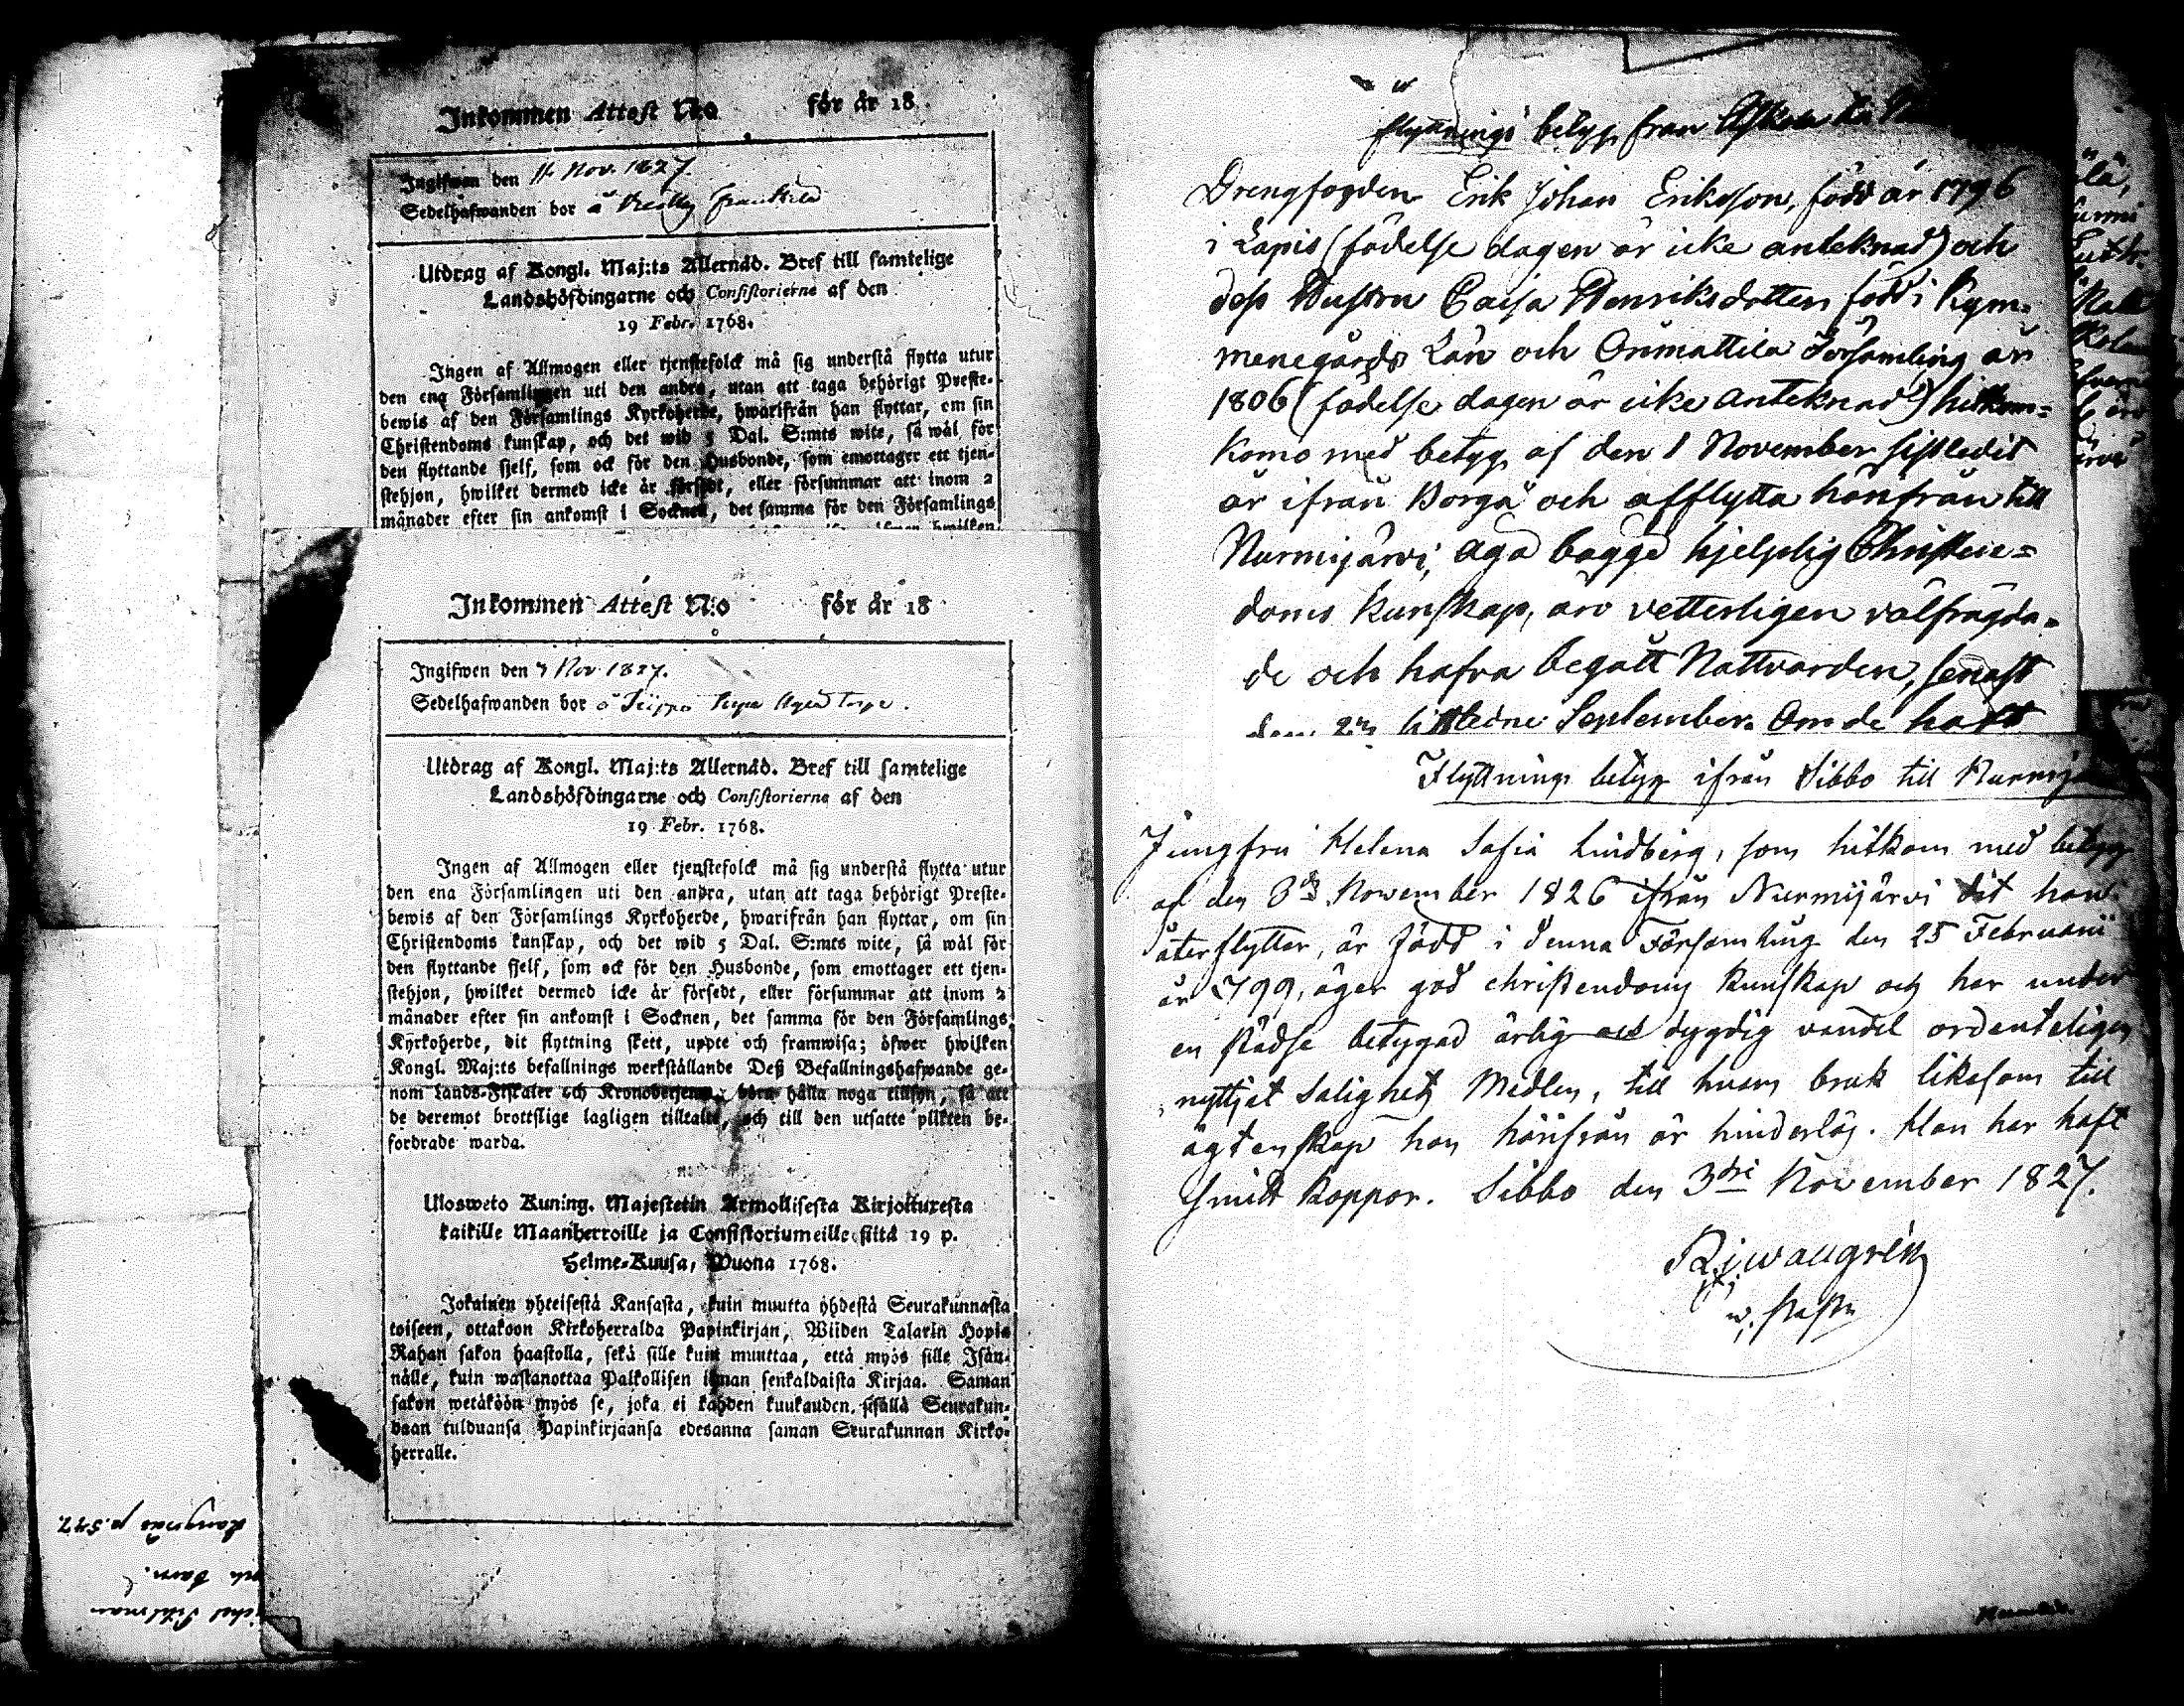 Inkommen Attest N:o för år 18
Ingifwen den 11 Nov. 1827.
Sedelhafwanden bor å
Utdrag af Kongl. Maj:ts Allernåd. Bref till samtelige
Landshöfdingarne och Consistorierne af den
19 Febr. 1768.
Ingen af Allmogen eller tjenstefolck må sig understå flytta utur
den ena Församlingen uti den andra, utan att taga behörigt Preste-
bewis af den Församlings Kyrkoherde, hwarifrån han flyttar, om sin
Christendoms kunskap, och det wid 5 Dal. S:mts wite, så wäl för
den flyttande sjelf, som ock för den Husbonde, som emottager ett tjen-
stehjon, hwilket dermed icke är försedt, eller försummar att inom 2
månader efter sin ankomst i Socknen, det samma för den Församlings
Inkommen Attest N:o för år 18
Ingifwen den 7 Nov 1827.
Sedelhafwanden bor å
Utdrag af Kongl. Maj:ts Allernåd. Bref till samtelige
Landshöfdingarne och Consistorierne af den
19 Febr. 1768.
Ingen af Allmogen eller tjenstefolck må sig understå flytta utur
den ena Församlingen uti den andra, utan att taga behörigt Preste-
bewis af den Församlings Kyrkoherde, hwarifrån han flyttar, om sin
Christendoms kunskap, och det wid 5 Dal. S:mts wite, så wäl för
den flyttande sjelf, som ock för den Husbonde, som emottager ett tjen-
stehjon, hwilket dermed icke är försedt, eller försummar att inom 2
månader efter sin ankomst i Socknen, det samma för den Församlings
Kyrkoherde, dit flyttning skett, uppte och framwisa; öfwer hwilken
Kongl. Maj:ts befallnings werkställande Deß Befallningshafwande ge-
nom Lands-Fiskaler och Kronobetjente, böra hålla noga tillsyn, så att
de deremot brottslige lagligen tilltalas, och till den utsatte plikten be-
fordrade warda.
Ulosweto Kuning. Majestetin Armollisesta Kirjoituxesta
kaikille Maanherroille ja Consistoriumeille siitä 19 p.
Helme-Kuusa, Wuona 1768.
Jokainen yhteisestä Kansasta, kuin muutta yhdestä Seurakunnasta
toiseen, ottakoon Kirkoherralda Papinkirjan, Wiiden Talarin Hopia
Rahan sakon haastolla, sekä sille kuin muuttaa, että myös sille Isän-
nälle, kuin wastanottaa Palkollisen ilman senkaldaista Kirjaa. Saman
sakon wetäköön myös se, joka ei kahden kuukauden sisällä Seurakun-
daan tulduansa Papinkirjaansa edesanna saman Seurakunnan Kirko-
herralle.
Flyttnings betyg från
Drengfogden Erik Johan Eriksson, född år 1796
i Lapis (födelse dagen är icke anteknad) och
dess Hustru Caisa Henriksdotter född i Kym-
menegårds Län och Orimattila Församling år
1806 (födelse dagen är icke anteknad) hitkom-
komo med betyg af den 1 November sistledit
år ifrån Borgå och afflytta härifrån till
Nurmijärvi, äga bägge hjelplig Christen-
doms kunskap, äro vetterligen välfrägda-
de och hafva begått Nattvarden, senast
September. Om de haft
Flyttnings betyg ifrån Sibbo till
Jungfru Helena Sofia Lindberg, som hitkom med betyg
af den 3de November 1826 ifrån Nurmijärvi dit hon
återflyttar, är född i denna Församling den 25 Februarii
år 1799, äger god christendoms kunskap och har under
en städse betygad ärlig och dygdig vandel ordenteligen
nyttjat Salighets Medlen, till hvars bruk likasom till
ägtenskap hon härifrån är hinderlös. Hon har haft
Smitt koppor. Sibbo den 3dri November 1827.
Langnäs p. 547.
och barn.